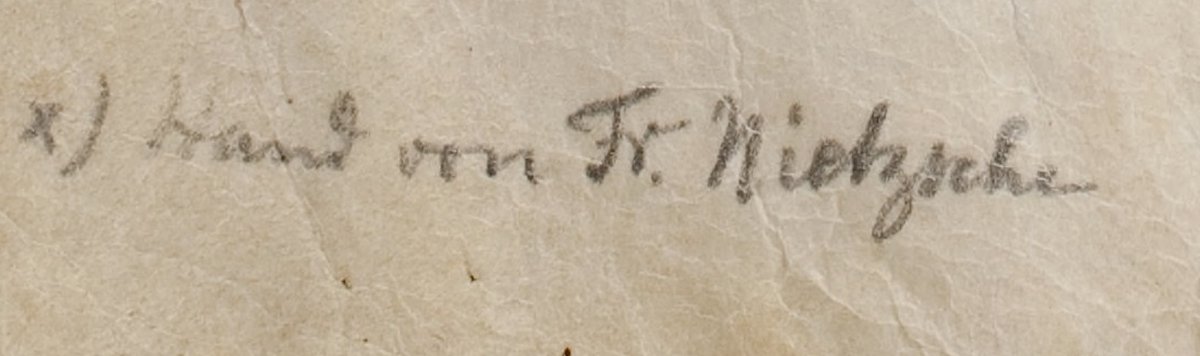 x) Hand von Fr. Nietzsche